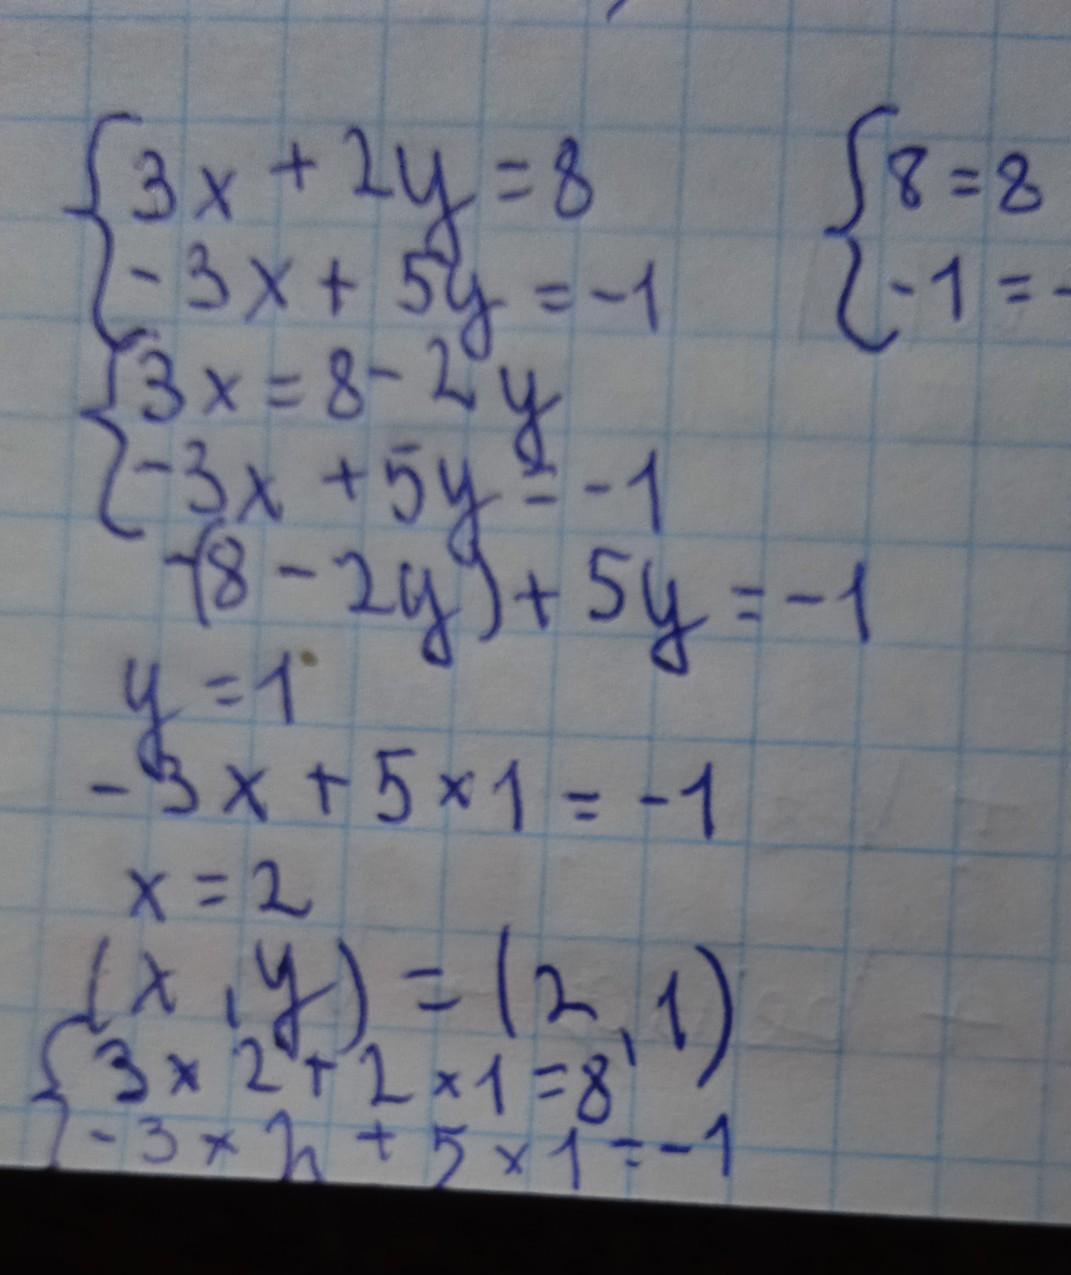 3x + 2y = 8
-3x + 5y = -1
3x = 8 - 2y
-3x + 5y = -1
-(8 - 2y) + 5y = -1
y = 1
-3x + 5 × 1 = -1
x = 2
(x, y) = (2, 1)
3 × 2 + 2 × 1 = 8
-3 × 2 + 5 × 1 = -1
8 = 8
-1 = -